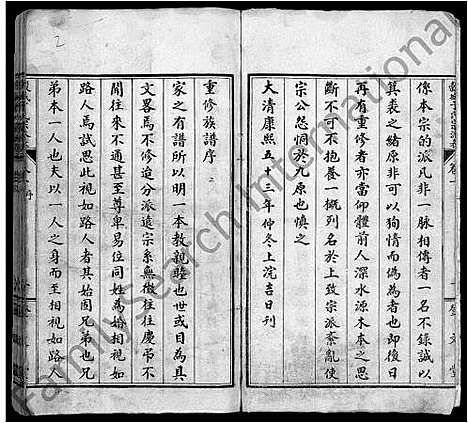 像本宗的派凡非一脈相傳者一名不錄誠以
其喪之緒原非可以狥情而偽為者也即後日
再有重修者亦當仰體前人深水源木本之思
斷不可不抱養一概列名於上致宗派紊亂使
宗公怨恫於九原也慎之
大清康熙五十三年仲冬上浣吉日刊
2
重修族譜序
家之有譜所以明一本教親睦也世或目為具
文畧焉不修迨分派遠宗系無徵往往慶弔不
聞往來不通甚至尊卑易位同姓為婚相視如
路人焉試思此視如路人者其始固兄弟也兄
弟本一人也夫以一人之身而至相視如路人
FamilySearch International